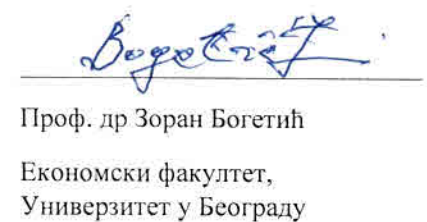 Проф. др Зоран Богетић
Економски факултет,
Универзитет у Београду